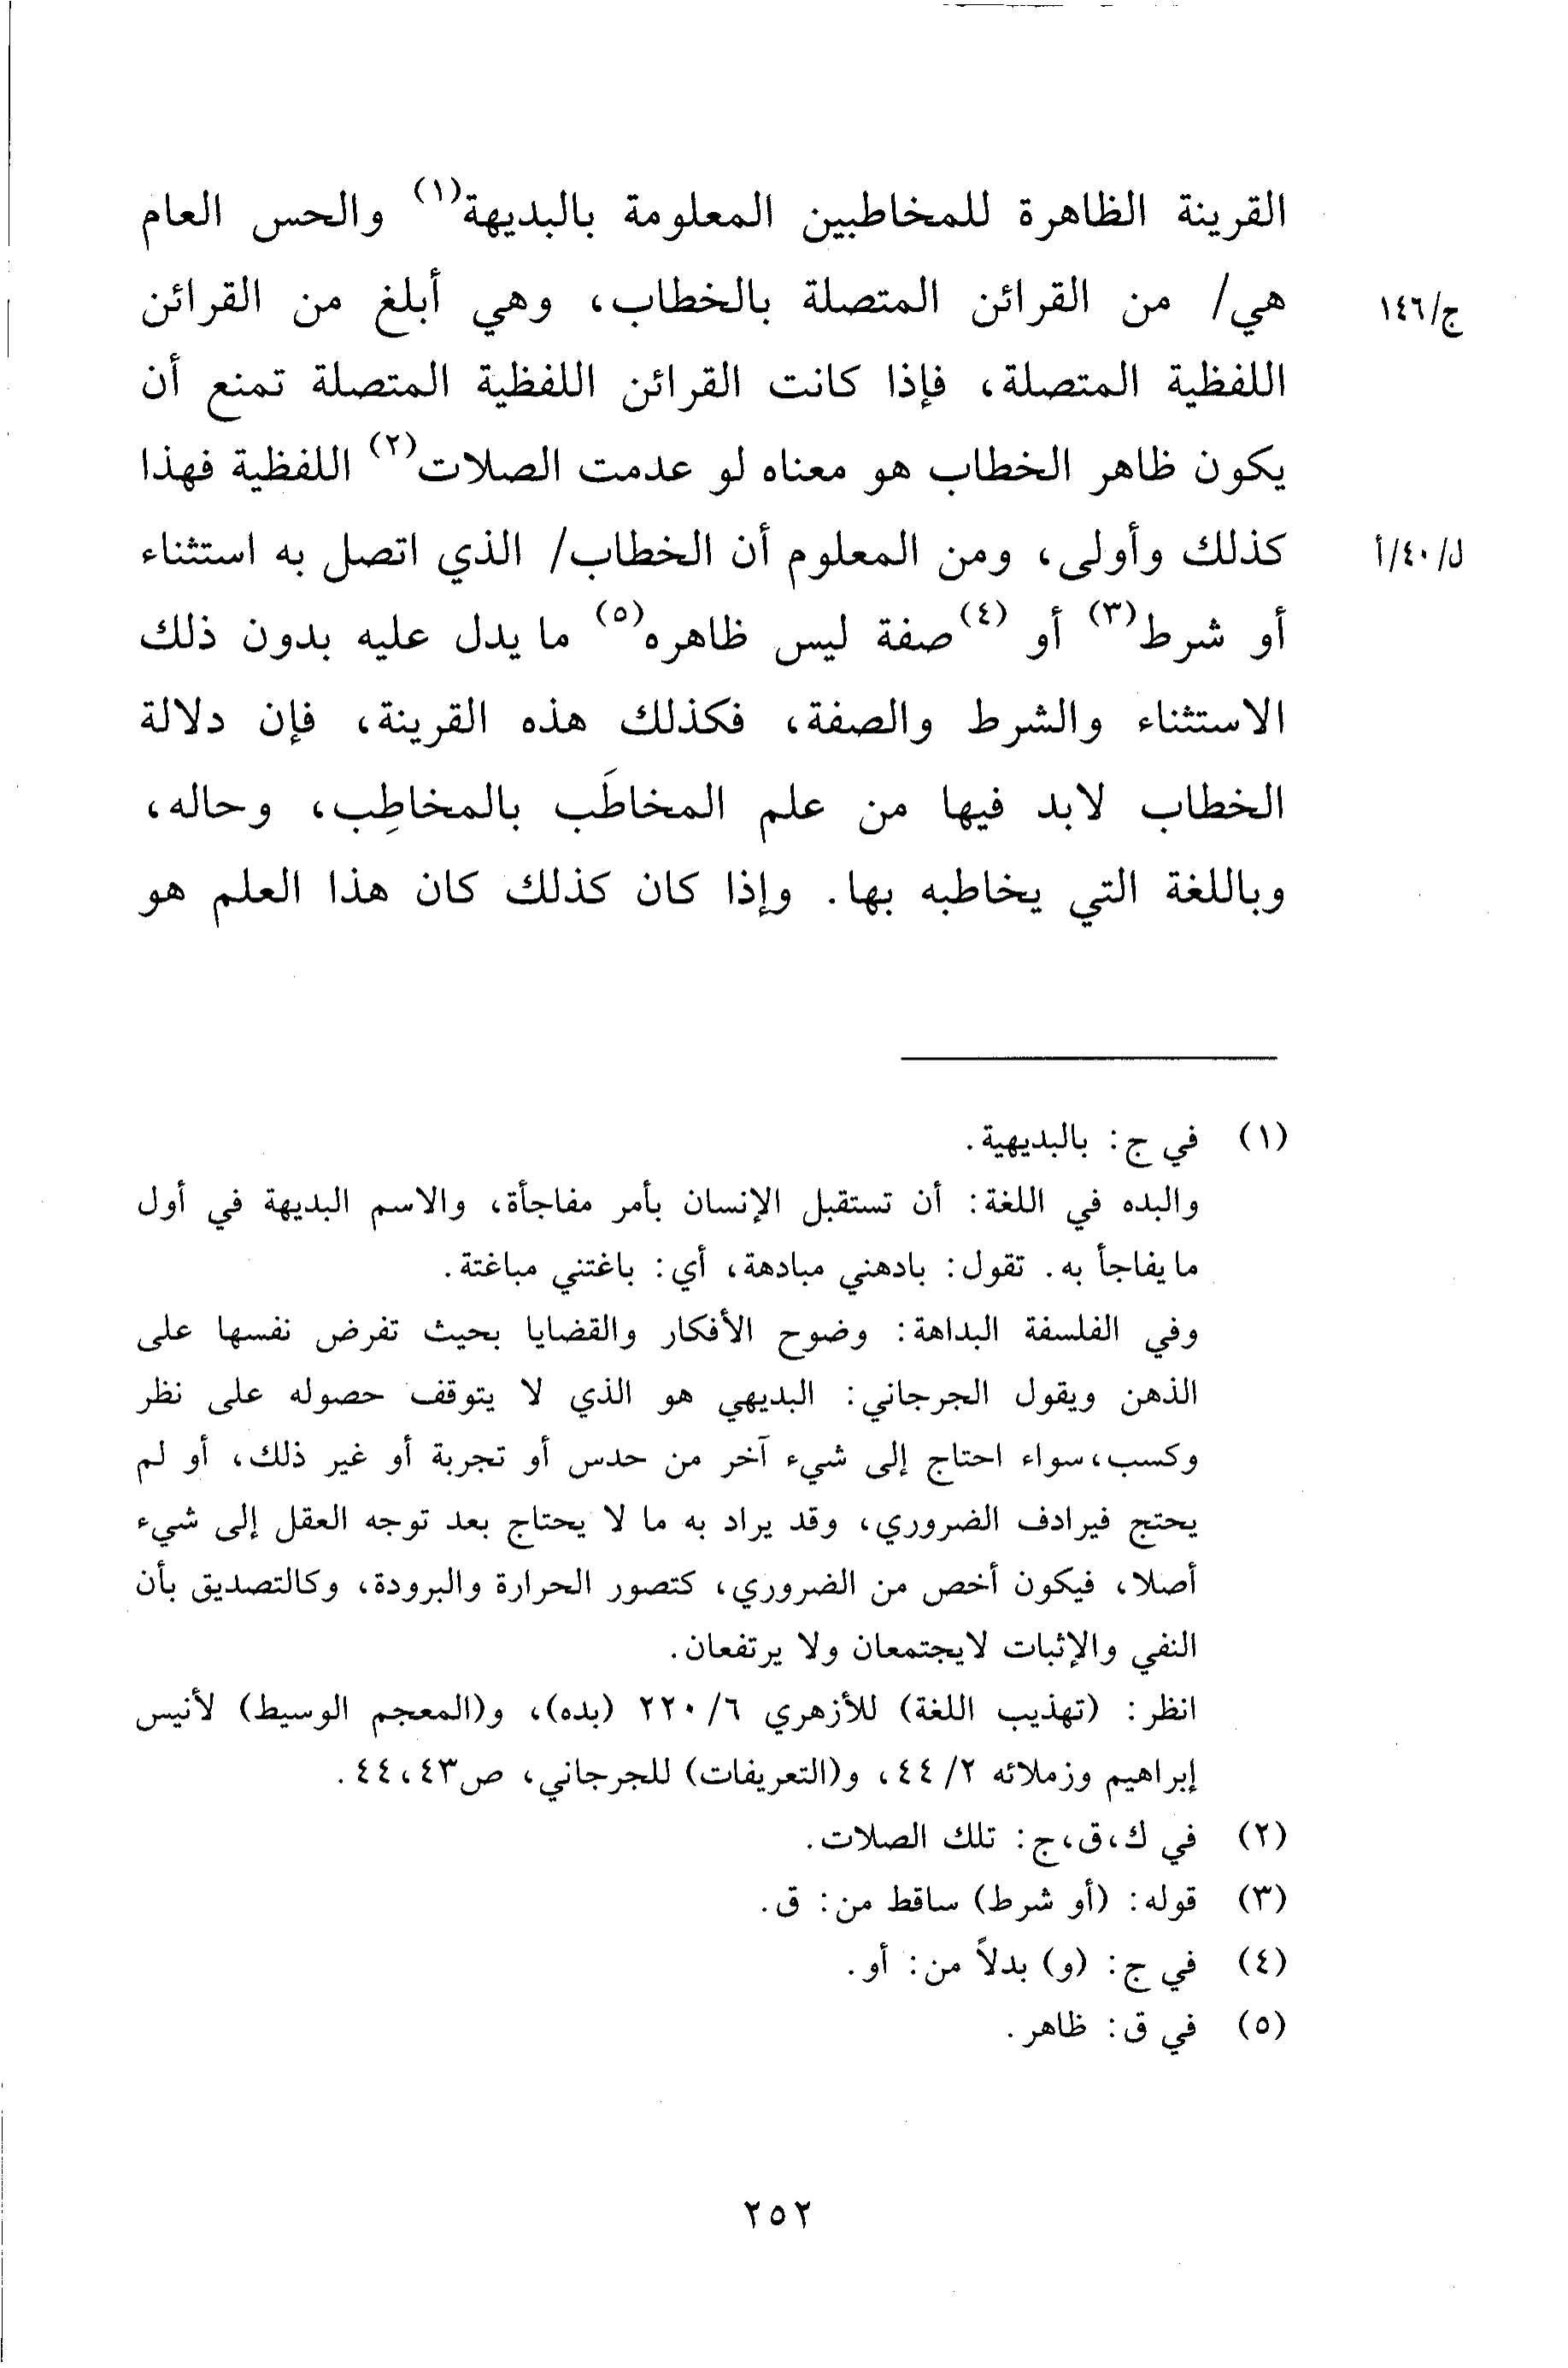 القرينة الظاهرة للمخاطبين المعلومة بالبديهة(١) والحس العام
هي/ من القرائن المتصلة بالخطاب، وهي أبلغ من القرائن
ج/١٤٦
اللفظية المتصلة، فإذا كانت القرائن اللفظية المتصلة تمنع أن
يكون ظاهر الخطاب هو معناه لو عدمت الصلات(٢) اللفظية فهذا
كذلك وأولى، ومن المعلوم أن الخطاب/ الذي اتصل به استثناء
ل/٤٠/أ
أو شرط(٣) أو (٤)صفة ليس ظاهره(٥) ما يدل عليه بدون ذلك
الاستثناء والشرط والصفة، فكذلك هذه القرينة، فإن دلالة
الخطاب لابد فيها من علم المخاطَب بالمخاطِب، وحاله،
وباللغة التي يخاطبه بها. وإذا كان كذلك كان هذا العلم هو
(١) في ج: بالبديهية.
والبده في اللغة: أن تستقبل الإنسان بأمر مفاجأة، والاسم البديهة في أول
ما يفاجأ به. تقول: بادهني مبادهة، أي: باغتني مباغتة.
وفي الفلسفة البداهة: وضوح الأفكار والقضايا بحيث تفرض نفسها على
الذهن ويقول الجرجاني: البديهي هو الذي لا يتوقف حصوله على نظر
وكسب، سواء احتاج إلى شيء آخر من حدس أو تجربة أو غير ذلك، أو لم
يحتج فيرادف الضروري، وقد يراد به ما لا يحتاج بعد توجه العقل إلى شيء
أصلا، فيكون أخص من الضروري، كتصور الحرارة والبرودة، وكالتصديق بأن
النفي والإثبات لايجتمعان ولا يرتفعان.
انظر: (تهذيب اللغة) للأزهري ٦/ ٢٢٠ (بده)، و(المعجم الوسيط) لأنيس
إبراهيم وزملائه ٢/ ٤٤، و(التعريفات) للجرجاني، ص٤٣،٤٤.
(٢) في ك،ق،ج: تلك الصلات.
(٣) قوله: (أو شرط) ساقط من: ق.
(٤) في ج: (و) بدلاً من: أو.
(٥) في ق: ظاهر.
٢٥٢